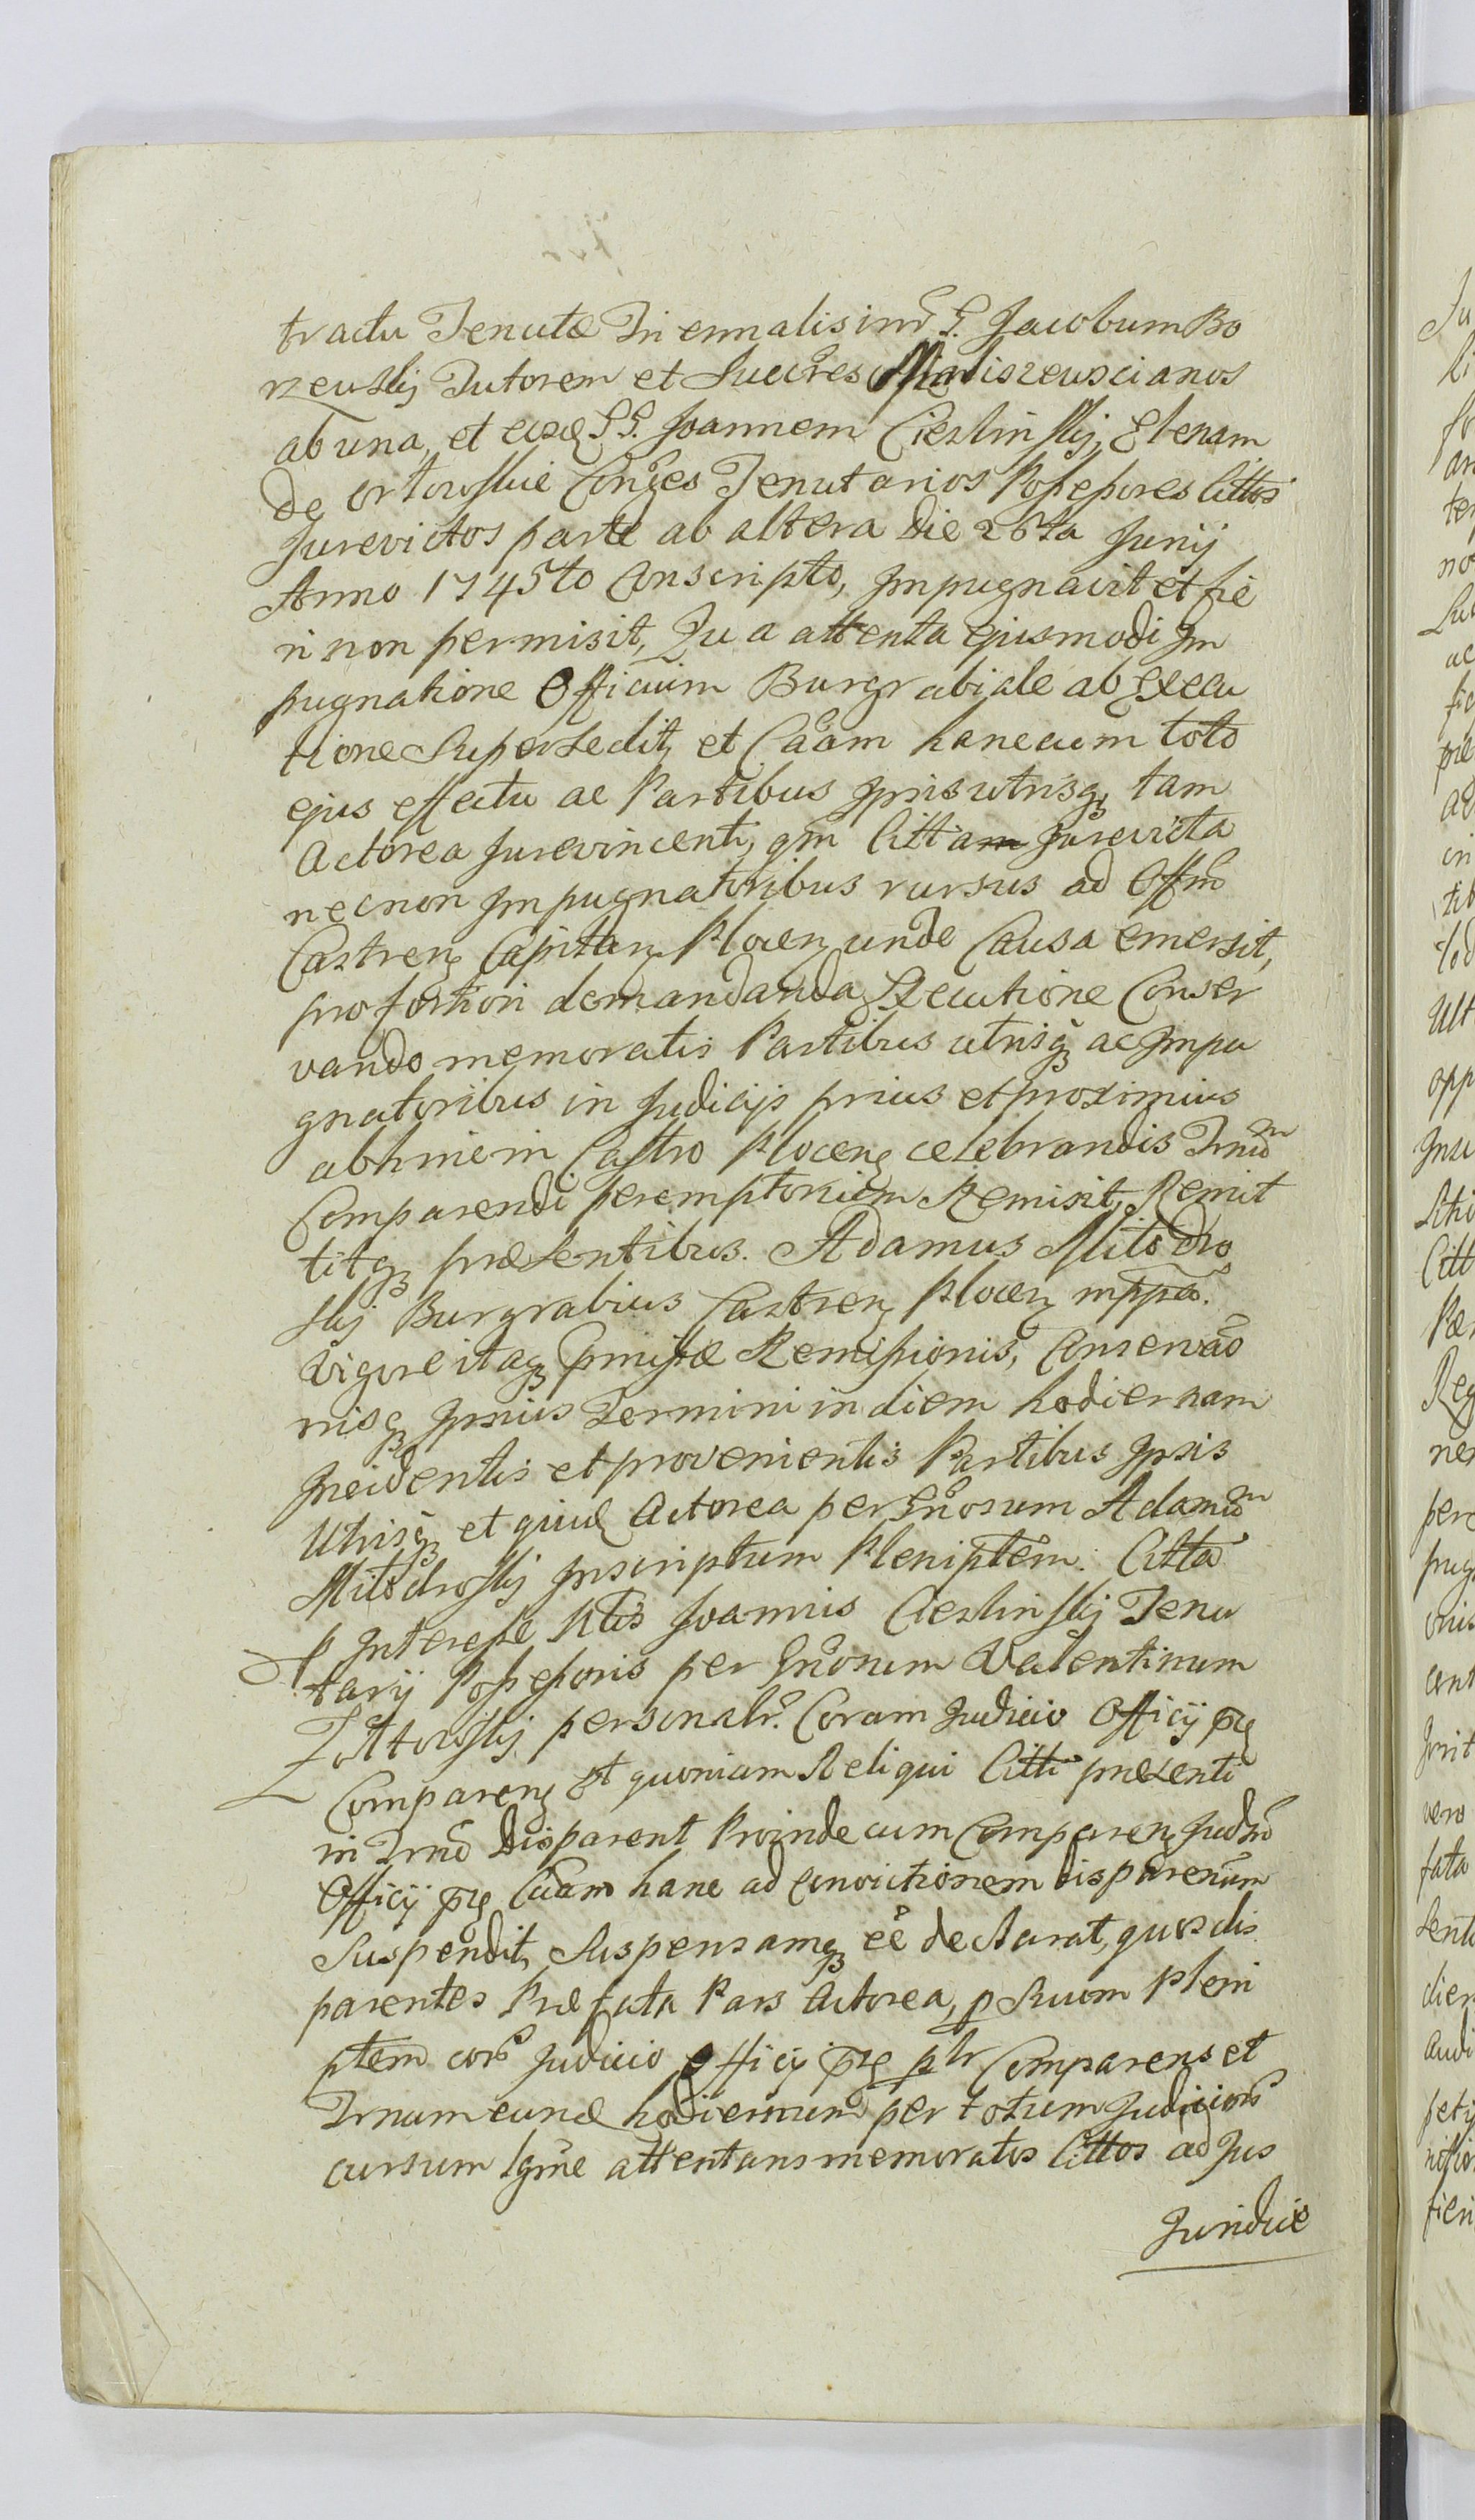 tractu Tenutæ Triennalis inr̃ G. Jacobum Bo
rzewskij Tutorem et Succr̃es Miniszewscianos
ab una, et eosd GG. Joannem Cieslinskij, Elenam
De Ortowskie Conj̃es Tenutarios Possessores Citt̃os
Jurevictos parte ab altera Die 26ta Junij
Anno 1745to Conscripto, Jmpugnavit et fie
ri non permisit, Qua attenta ejusmodi Jm
pugnatione Officium Burgrabiale ab Execu
tione Supersedit, et Cãam hanc cum toto
ejus effectu ac Partibus Jpsis utrisq, tam
Actorea Jurevincenti, qm̃ Citta Jurevicta
necnon Jmpugnatoribus rursus ad Offm̃
Castren Capitan Plocen unde Causa emersit,
pro fortiori demandanda Executione Conser
vando memoratis Partibus utrisq ac Jmpu
gnatoribus in Judicijs prius et proximius
abhinc in Castro Plocen celebrandis Trnum
Comparendi peremptorium Remisit, Remit
titq præsentibus. Adamus Mitodro
skij Burgrabius Castren Plocen mppa.
Vigore itaq præmissæ Remissionis, Conservão
nisq Jpsius Termini in diem hodiernam
Jncidentis et provenientis Partibus Jpsis
Utrisq et quid Actorea per Gñosum Adamum
Mitodroskij Jnscriptum Pleniptem̃. Citta
p Jnteresse Ntis Joannis Cieslinskij Tenu
tarij Possessoris per Gñosum Valentinum
Zottowskij personalr̃. Coram Judicio Officij pñ
Comparen Et quoniam Reliqui Citti præsenti
in Trnõ Disparent Proinde cum Comparen Judm̃
Officij pñ Cãam hanc ad Convictionem disparenum
Suspendit, Suspensamq eẽ declarat, quos dis
parentes Præfata Pars Actorea, p Suum Pleni
ptem̃ corõ Judicio Officij pñ plr Comparens et
Trnum eund hodiernum per totum Judiciorũ
cursum lgm̃e attentans memoratos Cittos ad Jus
Juridice